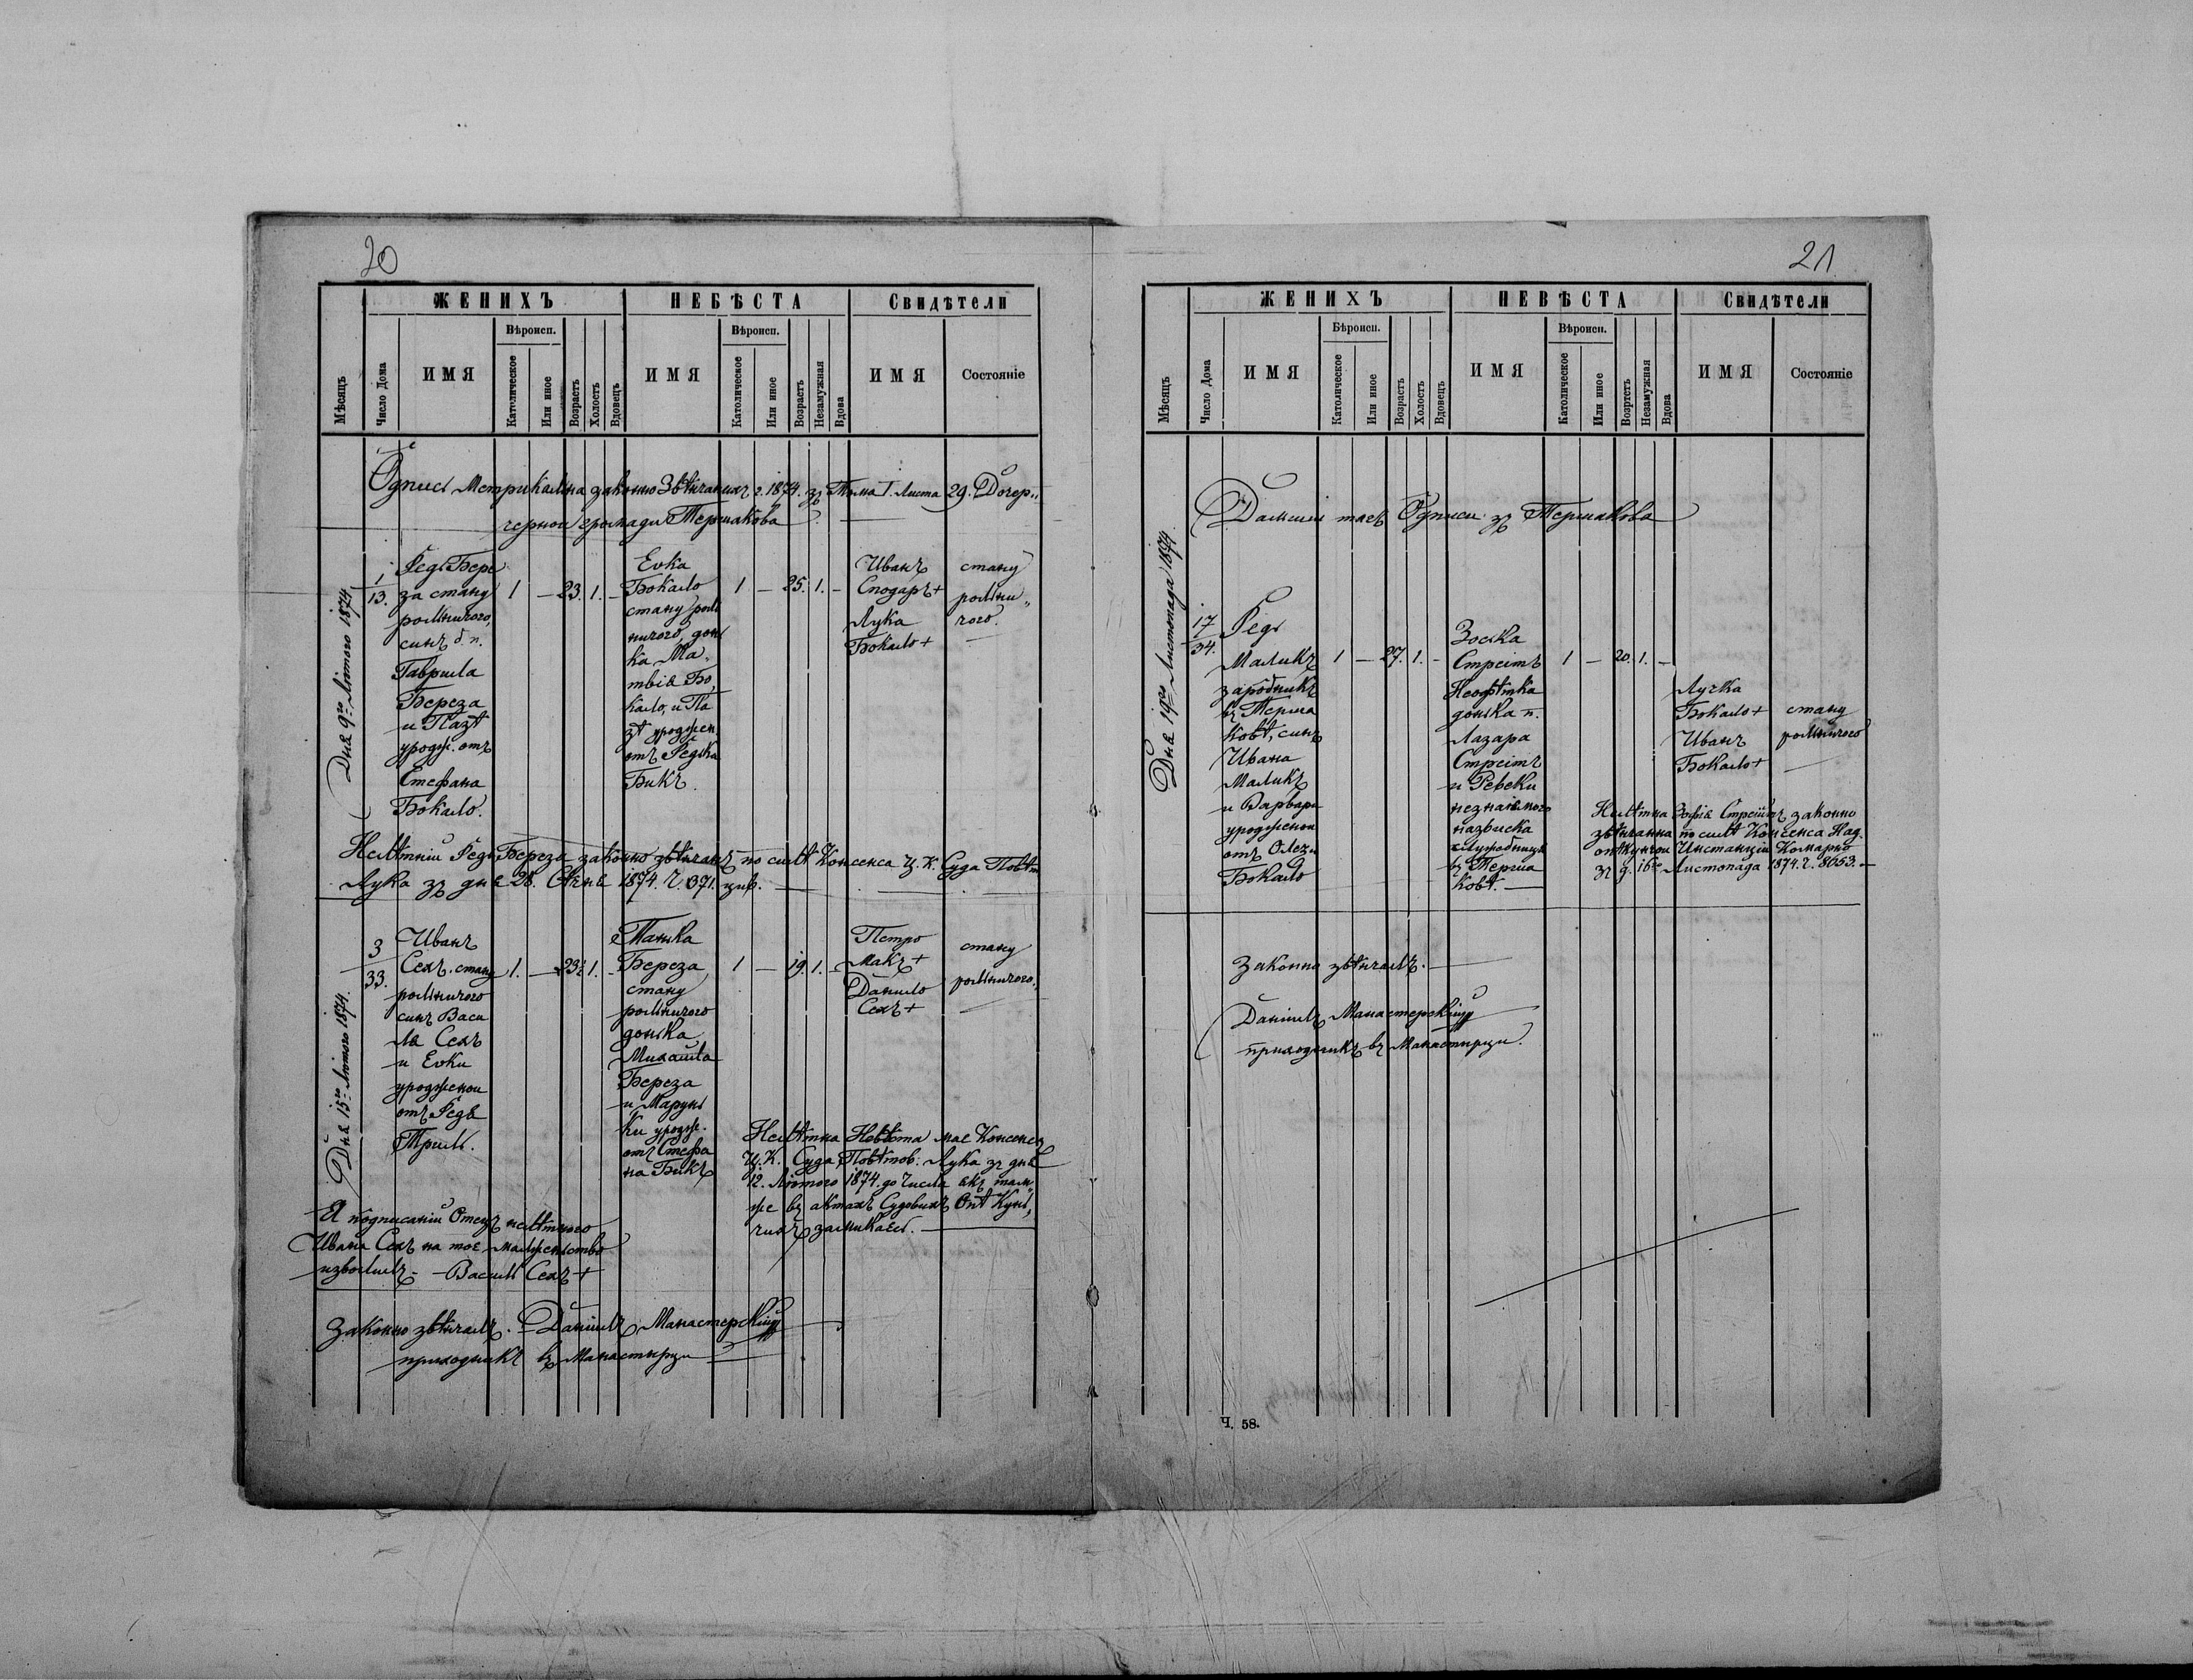 20
ЖЕНИХЪ
НЕБѢСТА
Свидѣтели
Мѣсяцъ
Число Дома
ИМЯ
Вѣроисп.
Католическое
Или иное
Возрастъ
Холостъ
Вдовецъ
ИМЯ
Вѣроисп.
Католическое
Или иное
Возрастъ
Незамужная
Вдова
ИМЯ
Состояніе
Одписъ Метрикальна законно Звѣнчаныхъ г. 1874. зъ Тома I. Листа 29. Дочер„
черной громады Тершакова
Дня 9го Лютого 1874
1
13.
Федь Бере
за стану
рольничого,
сынъ б. п.
Гаврыла
Береза
и Пазѣ
уродж. отъ
Стефана
Бокало.
1 — 23. 1. –
Евка
Бокало
стану роль
ничого, донь
ка Ма„
твія Бо„
кало, и Па
зѣ уроджен.
отъ Федька
Бикъ.
1 — 25. 1. –
Иванъ
Сподаръ +
Лука
Бокало +
стану
рольни„
чого.
Нелѣтній Федь Береза законно звѣнчанъ по силѣ Консенса Ц. К. Суда Повѣт
Лука зъ дня 28. Сѣчня 1874. Ч. 371. цив.
Дня 15го Лютого 1874.
3
33.
Иванъ
Сехъ. стану
рольничого
сынъ Васи
ля Сехъ
и Евки
уродженои
отъ Федя
Триль.
1. — 23½ 1. –
Танька
Береза
стану
рольничого
донька
Михайла
Береза
и Марунь
ки уродж.
отъ Стефа
на Бикъ
1 — 19. 1. –
Петро
Макъ +
Данило
Сехъ +
стану
рольничого.
Нелѣтна Невѣста мае Консенсъ
Ц. К. Суда Повѣтов. Лука зъ дня
12. Лютого 1874. до Числа якъ там„
же въ актахъ Судовыхъ Опѣкунь„
чихъ замыкаесь.
Я подписаный Отецъ нелѣтного
Ивана Сехъ на тое мальженьство
изволилъ. – Василь Сехъ +
Законно звѣнчалъ. – Даніилъ Манастерскій
приходникъ въ Манастирци
21
ЖЕНИХЪ
НЕВѢСТА
Свидѣтели
Мѣсяцъ
Число Дома
ИМЯ
Бѣроисп.
Католическое
Или иное
Возрастъ
Холостъ
Вдовецъ
ИМЯ
Вѣроисп.
Католическое
Или иное
Возртстъ
Незамужная
Вдова
ИМЯ
Состояніе
Одписи зъ Тершакова
Дня 19го Листопада 1874.
17
34.
Федь
Маликъ
заробникъ
въ Терша
ковѣ, сынъ
Ивана
Маликъ
и Варвари
уродженои
отъ Олекси
Бокало
1 — 27. 1. –
Зоська
Стрейтъ
Неофѣтка
донька п.
Лазара
Стрейтъ
и Ревеки
незнаемого
назвиска
служебниця
въ Терша
ковѣ.
1 — 20. 1. –
Лучка
Бокало +
Иванъ
Бокало +
стану
рольничого
Нелѣтна Зофія Стрейтъ законно
звѣнчанна по силѣ Консенса Над.
опѣкунчои Инстанціи Комарно
зъ д. 16го Листопада 1874. Ч. 8653. —
Законно звѣнчалъ.
Даніилъ Манастерскій
приходникъ въ Манастирци.
Ч. 58.